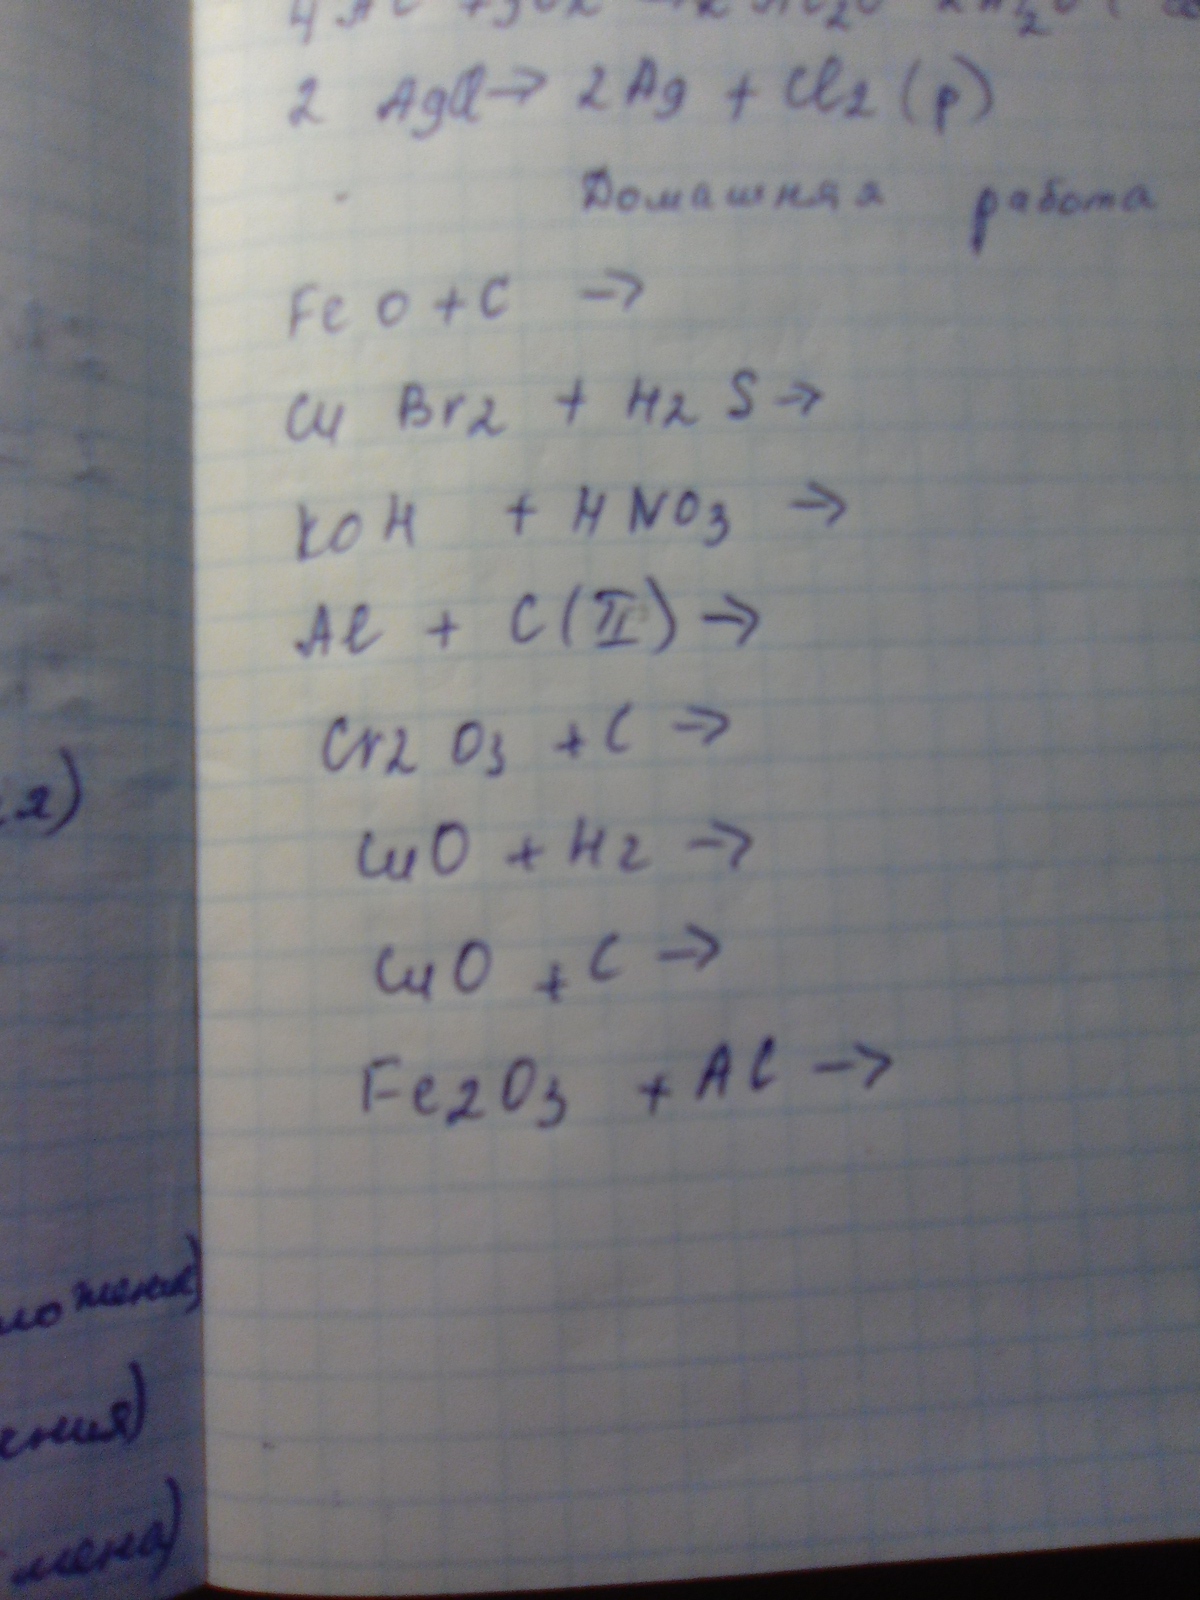 2 AgCl → 2Ag + Cl2 (р)
Домашняя работа
FeO + C →
CuBr2 + H2S →
KOH + HNO3 →
Al + C(II) →
Cr2O3 + C →
CuO + H2 →
CuO + C →
Fe2O3 + Al →